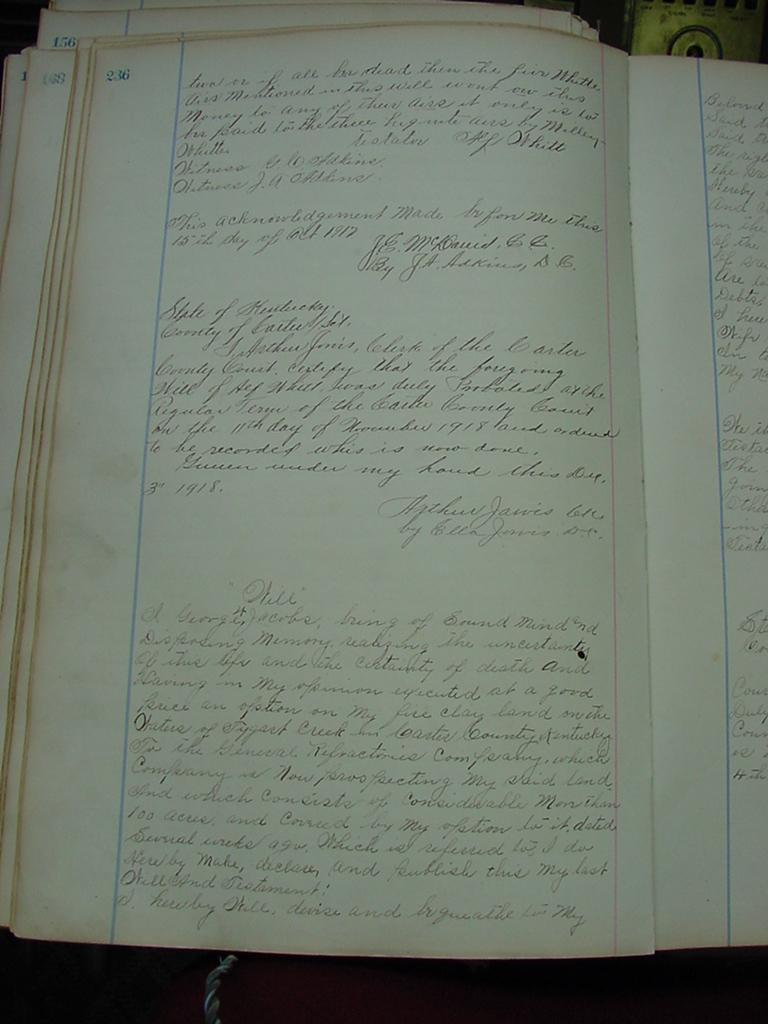 156
168
236
two or if all bur dead then the five Whitts
airs Mentioned in this will wont ow this
Money to any of their airs it only is to
bur paid to the three
airs by
Whitts testator Hf Whitt
Witness G W Adkins
Witness J. A Adkins.
This acknowledgement Made before Me this
15th day of Oct 1917
J.E. McDavid, C C.
By J.A. Adkins, D C.
State of Kentucky.
County of Carter, Sct.
I, Arthur Jarvis, Clerk of the Carter
County Court, certify that the foregoing
Will of Hf Whitt, was duly Probated at the
Regular Term of the Carter County Court
on the 11th day of November 1918 and ordered
to be recorded whis is now done.
Given under my hand this Dec.
3" 1918.
Arthur Jarvis Clk.
by Ella Jarvis D.C.
"Will"
I. George Jacobs, being of Sound Mind and
Disposing Memory, realizing the uncertainty
Of this life and the certainty of death And
Having in My opinion executed at a good
price an option on My fire clay land on the
Waters of Tygart Creek in Carter County, Kentucky
To the General Refractories Company, which
Company is Now prospecting My said land,
And which Consists of Considerable More than
100 acres, and Covered by My option to it, dated
Several weeks ago, Which is referred to, I do
Here by Make, declare, And publish this My last
Will And Testament:
I. hereby Will, devise and bequeathe to My
Beloved
Said
Said
The
the
Hereby
And
in the
of the
of
Are to
Debts,
I here
Wife
In
My
We
Testa
The
going
Othe
ing
Testa
Sta
Co
Cour
Duly
Coun
is
4th